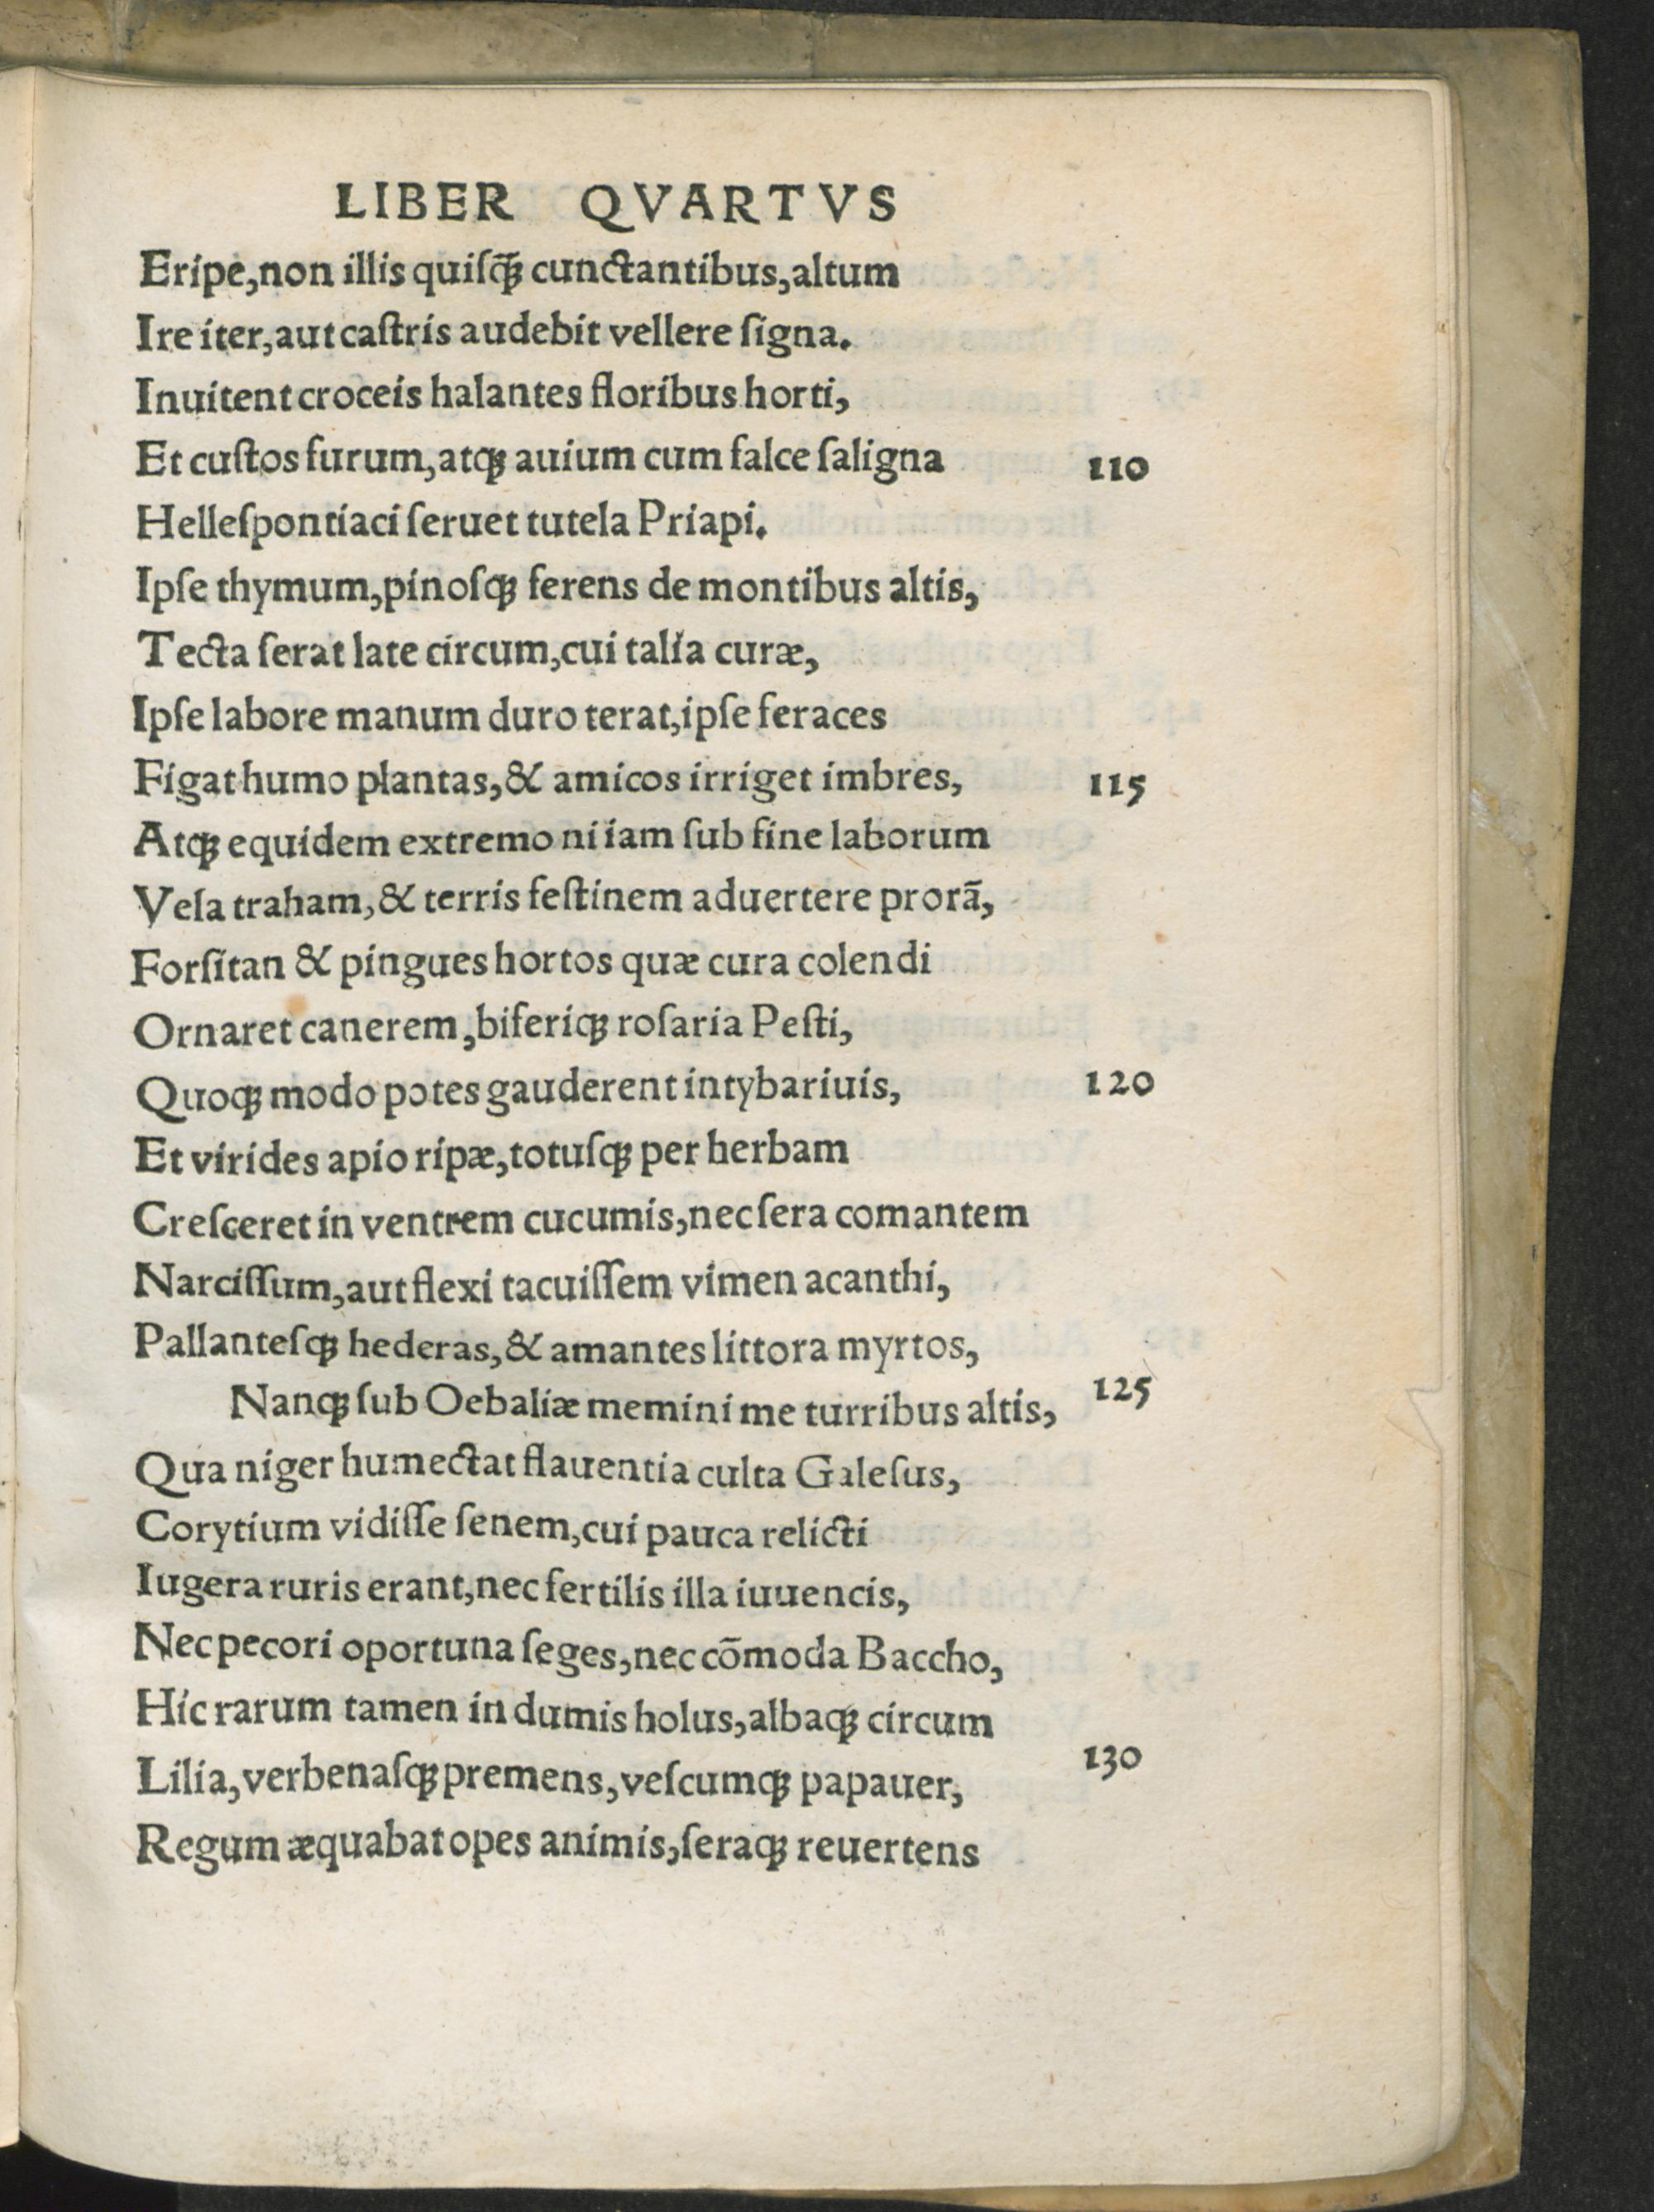 LIBER QVARTVS
Eripe,non illis quiſq̃ꝫ cunctantibus,altum
Ire iter,aut caſtris audebit vellere ſigna.
Inuitent croceis halantes floribus horti,
Et cuſtos furum,atqꝫ auium cum falce ſaligna 110
Helleſpontiaci ſeruet tutela Priapi.
Ipſe thymum,pinoſqꝫ ferens de montibus altis,
Tecta ſerat late circum,cui talia curæ,
Ipſe labore manum duro terat,ipſe feraces
Figat humo plantas,& amicos irriget imbres, 115
Atqꝫ equidem extremo ni iam ſub fine laborum
Vela traham,& terris feſtinem aduertere prorã,
Forſitan & pingues hortos quæ cura colendi
Ornaret canerem,biferiqꝫ roſaria Peſti,
Quoqꝫ modo potes gauderent intybariuis, 120
Et virides apio ripæ,totuſqꝫ per herbam
Creſceret in ventrem cucumis,nec ſera comantem
Narciſſum,aut flexi tacuiſſem vimen acanthi,
Pallanteſqꝫ hederas,& amantes littora myrtos,
Nanqꝫ ſub Oebaliæ memini me turribus altis, 125
Qua niger humectat flauentia culta Galeſus,
Corytium vidiſſe ſenem,cui pauca relicti
Iugera ruris erant,nec fertilis illa iuuencis,
Nec pecori oportuna ſeges,nec cõmoda Baccho,
Hic rarum tamen in dumis holus,albaqꝫ circum
Lilia,verbenaſqꝫ premens,veſcumqꝫ papauer, 130
Regum æquabat opes animis,ſeraqꝫ reuertens